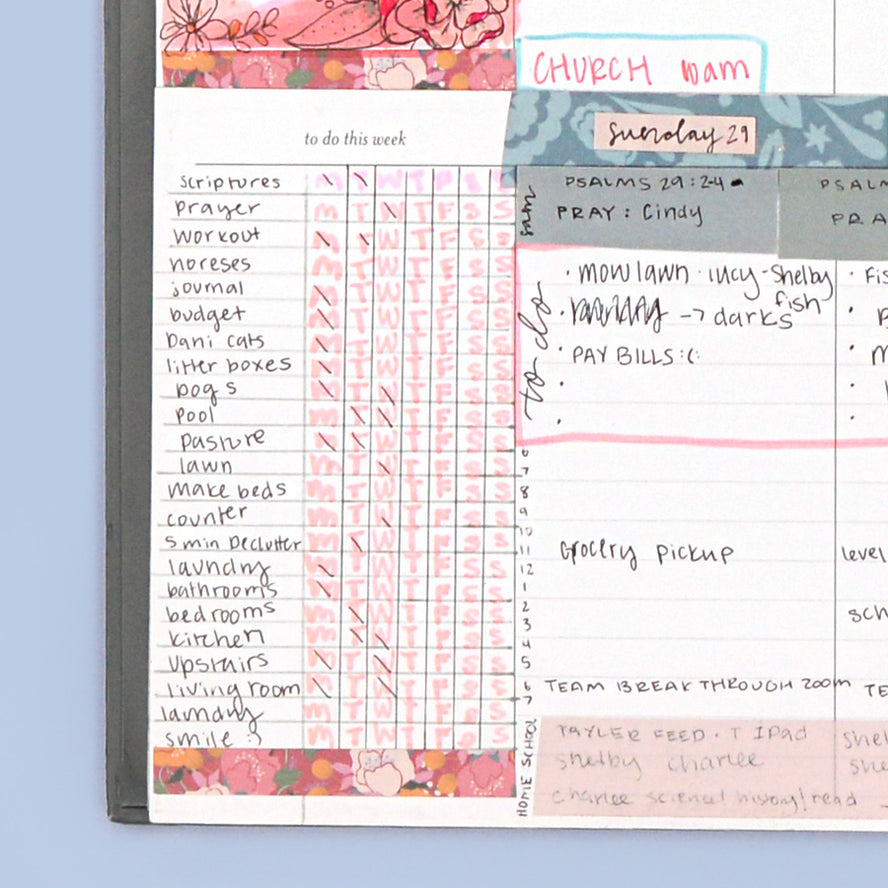 CHURCH 10am
sunday 29
to do this week
scriptures M T W T F S S
prayer M T W T F S S
workout M T W T F S S
noreses M T W T F S S
journal M T W T F S S
budget M T W T F S S
Dani cats M T W T F S S
litter boxes M T W T F S S
Dogs M T W T F S S
Pool M T W T F S S
Pasture M T W T F S S
lawn M T W T F S S
make beds M T W T F S S
counter M T W T F S S
5 min Declutter M T W T F S S
laundry M T W T F S S
bathrooms M T W T F S S
bedrooms M T W T F S S
kitchen M T W T F S S
upstairs M T W T F S S
living room M T W T F S S
laundry M T W T F S S
smile :) M T W T F S S
sam
PSALMS 29:2-4
PRAY: Cindy
to do
· mow lawn · lucy - Shelby
fish
· → darks
· PAY BILLS :(
·
·
6
7
8
9
10
11 Grocery pickup
12
1
2
3
4
5
6 TEAM BREAKTHROUGH ZOOM
7
HOME SCHOOL
TAYLER FEED · T IPad
shelby charlee
charlee science/history/read
PSALM
PRA
· Fis
level
sch
TE
shel
she